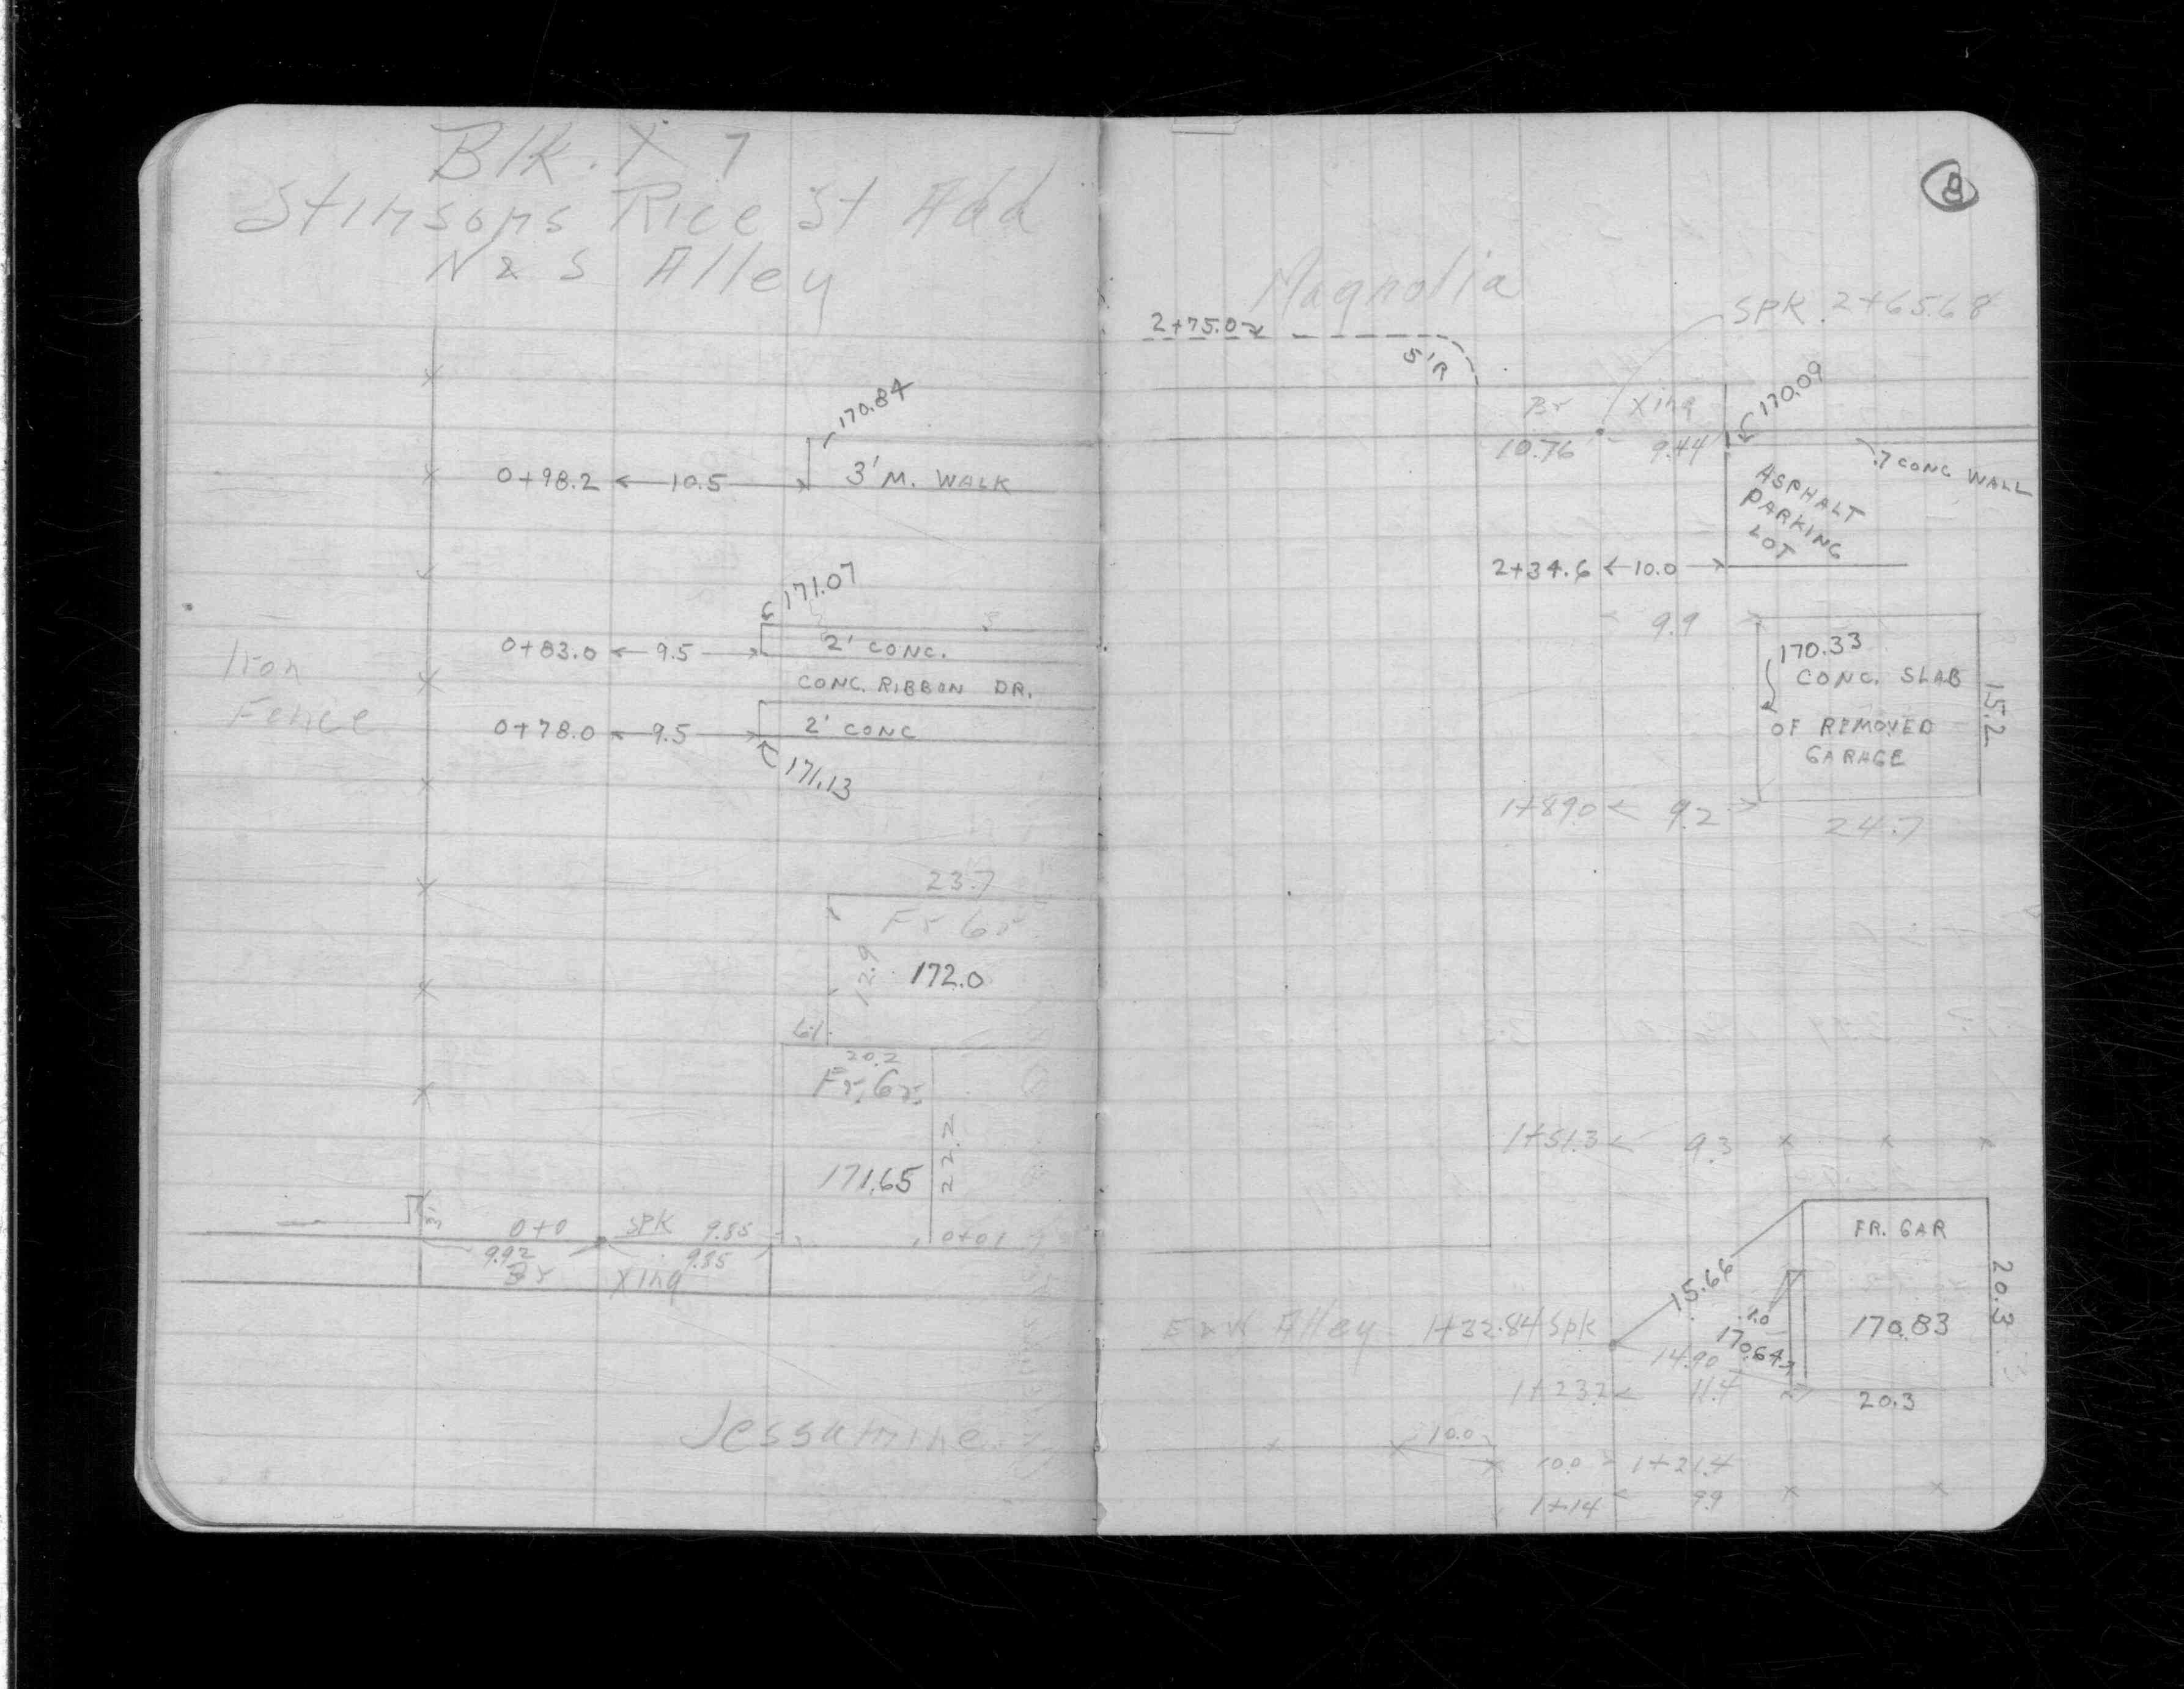 Blk. 7
Stinsons Rice St Add
N & S Alley
170.84
0+98.2 ← 10.5 → 3' M. WALK
171.07
0+83.0 ← 9.5 → 2' CONC.
CONC. RIBBON DR.
Iron
Fence
0+78.0 ← 9.5 → 2' CONC
171.13
23.7
Fr Gr
12.9
172.0
6.1
20.2
Fr. Gr.
22.2
171.65
0+0 SPK 9.85
0+01
9.92 9.85
Br Xing
Jessamine
8
Magnolia
SPK. 2+65.68
2+75.0
5'R
170.09
Br Xing
10.76 9.44
.7 CONC WALL
ASPHALT
PARKING
LOT
2+34.6 ← 10.0 →
9.9
170.33
CONC. SLAB
OF REMOVED
GARAGE
15.2
1+89.0 ← 9.2 →
24.7
1+51.3 ← 9.3
FR. GAR
15.66
20.3
1.0
E & W Alley 1+32.84 Spk
170.83
170.64
14.90
1+23.2 ← 11.4
20.3
10.0
10.0 1+21.4
1+14 9.9